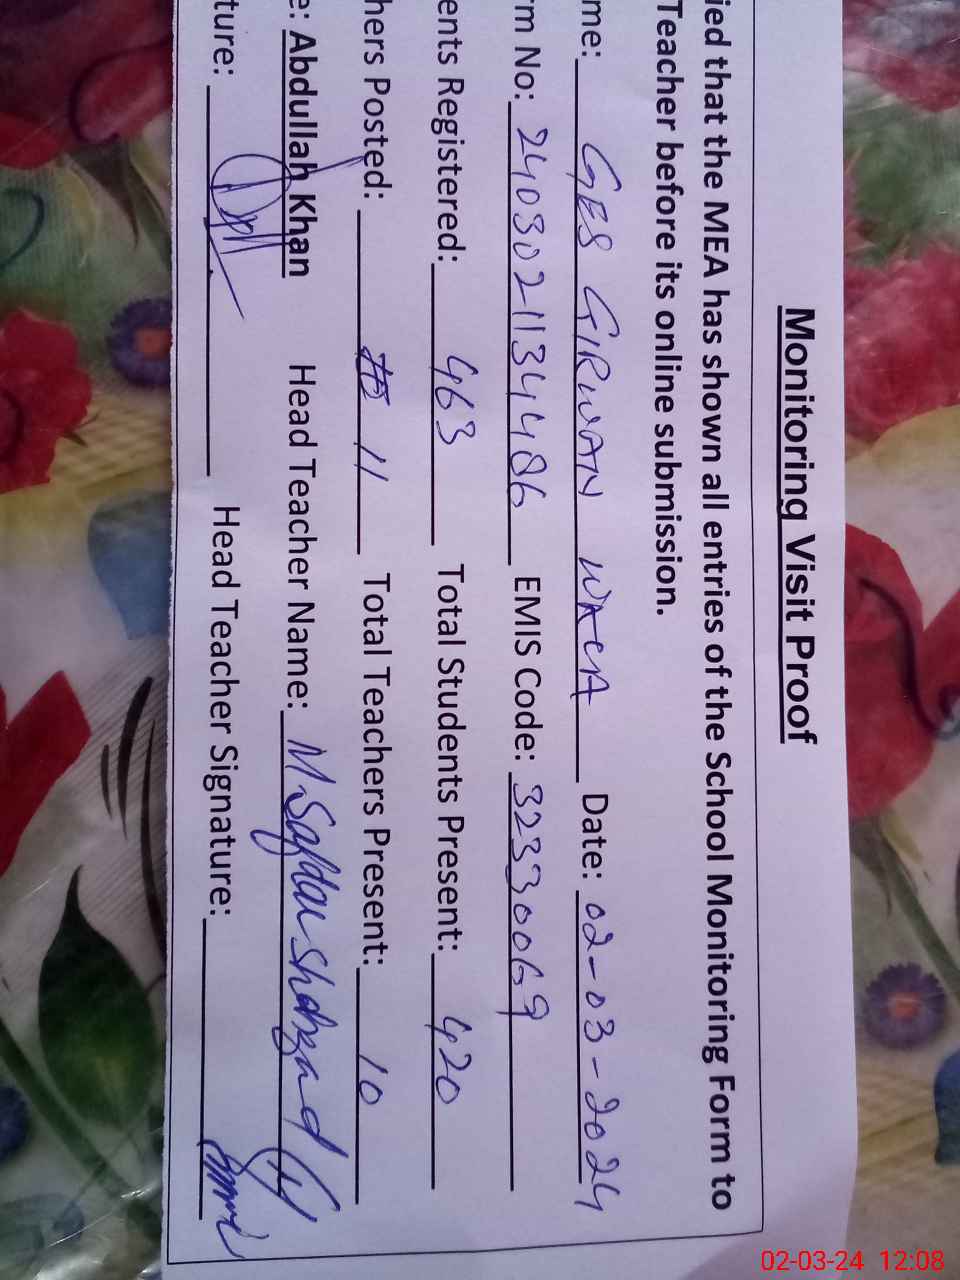 Monitoring Visit Proof
ied that the MEA has shown all entries of the School Monitoring Form to
Teacher before its online submission.
me: GES GIRWAN WACA Date: 02-03-2024
rm No: 2403021134486 EMIS Code: 32330069
ents Registered: 463 Total Students Present: 420
hers Posted: 11 Total Teachers Present: 10
e: Abdullah Khan Head Teacher Name: M Safdar Shahzad
ture: Head Teacher Signature:
02-03-24 12:08